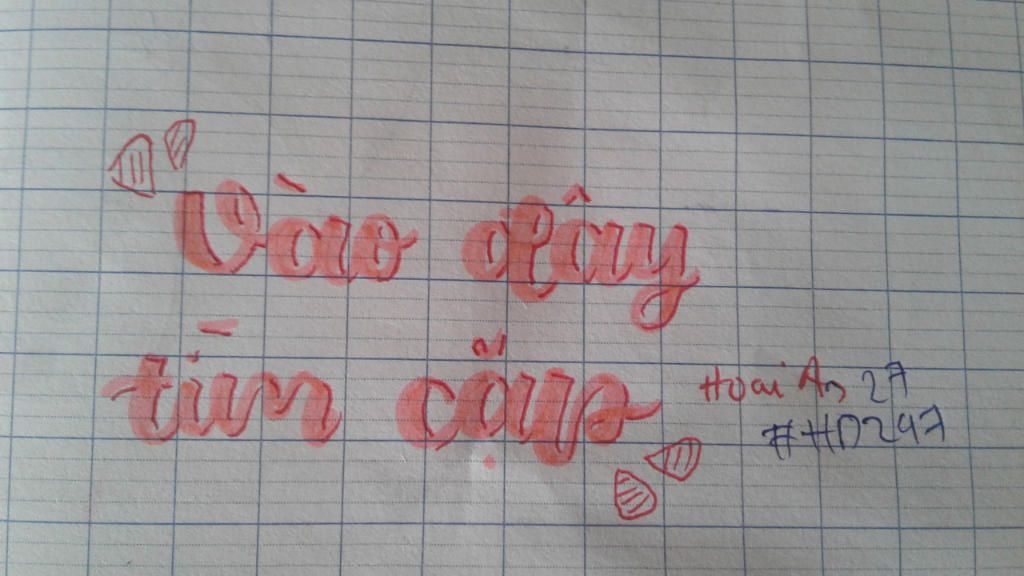 Vào đây
tìm cặp
Hoài An 27
#HD247